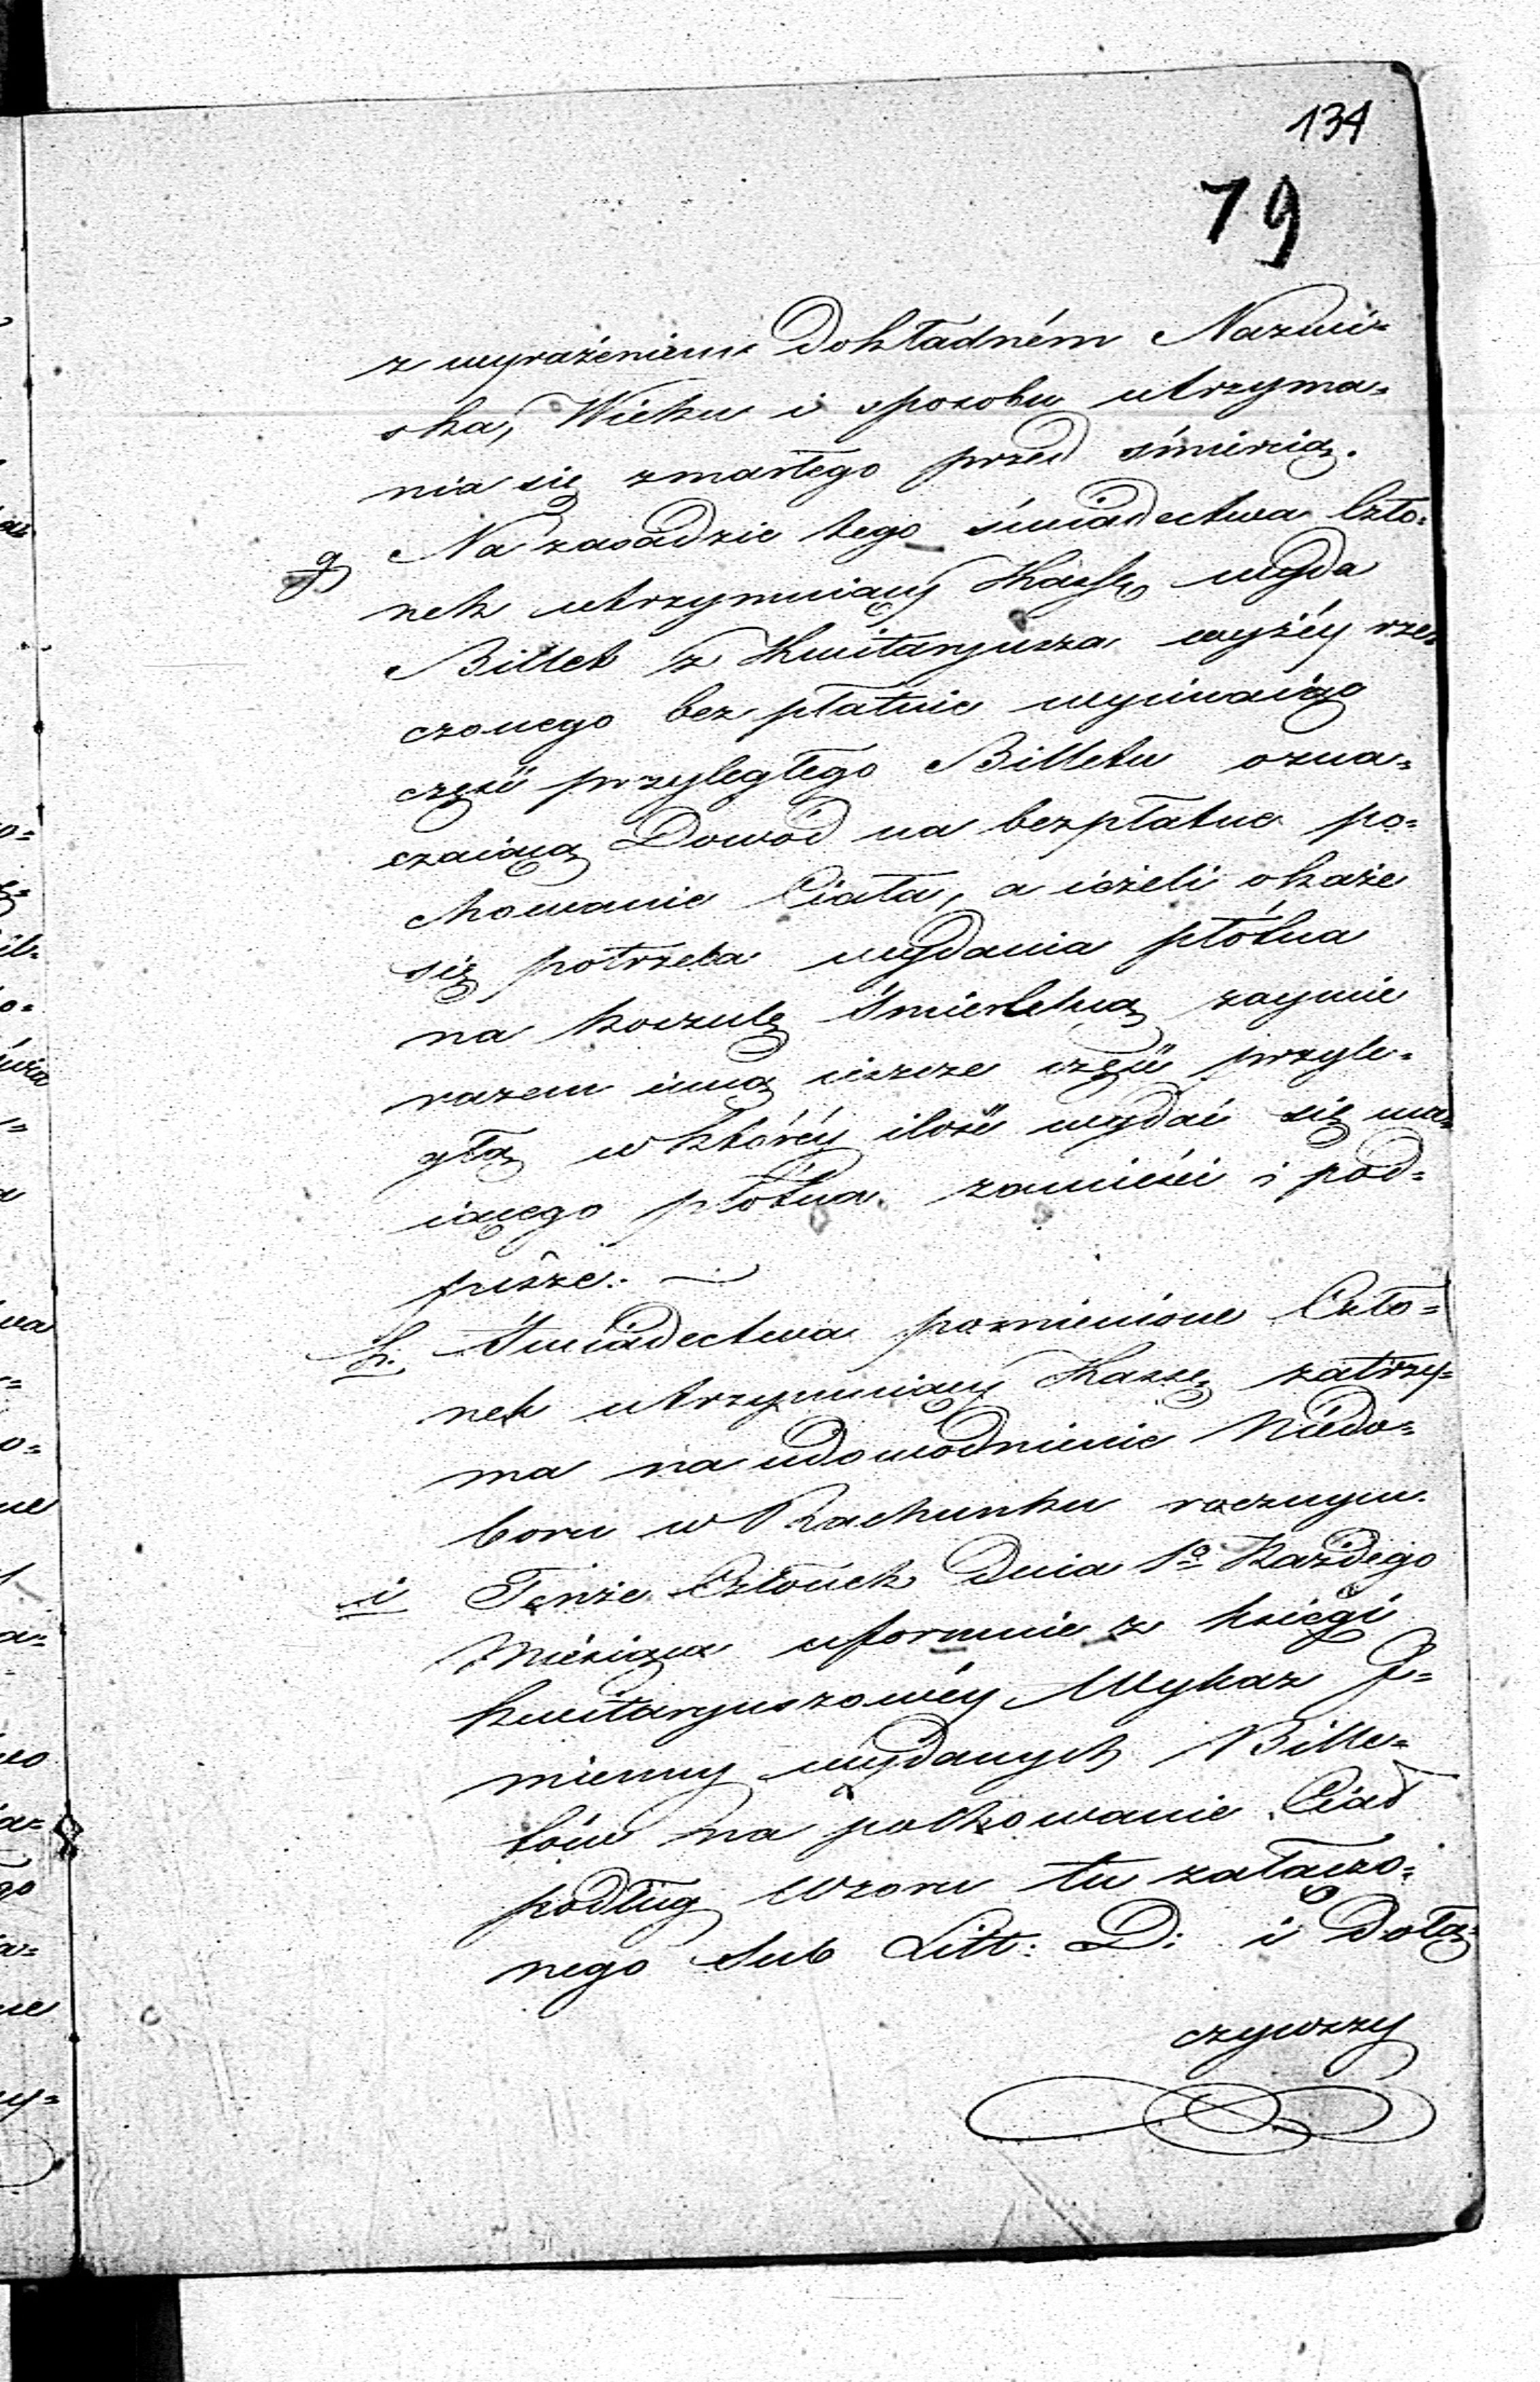 134
79
z wyrażeniem Dokładném Nazwi=
ska, Wieku i sposobu utrzyma=
nia się zmarłego przed śmiercią.
g) Na zasadzie tego świadectwa Czło=
nek utrzymuiący Kassę wyda
Billet z Kwitaryusza wyżéy rze=
czonego bez płatnie wycinaiąc
część przyległego Billetu ozna=
czaiącą Dowód na bezpłatne po=
chowanie Ciała, a ieżeli okaże
się potrzeba wydania płótna
na koszulę śmiertelną zaymie
razem inną ieszcze część przyle=
głą w któréy ilość wydać się ma=
iącego płótna zamieści i pod=
pisze.
h. Świadectwa pomienione Czło=
nek utrzymuiący Kassę zatrzy=
ma na udowodnienie Niedo=
boru w Rachunku rocznym.
i Tenże Członek Dnia 1o Każdego
Miesiąca uformuie z księgi
kwitaryuszowéy Wykaz J=
mienny wydanych Bille=
tów na pochowanie Ciał
podług wzoru tu załączo=
nego sub Litt: D: i Dołą=
czywszy